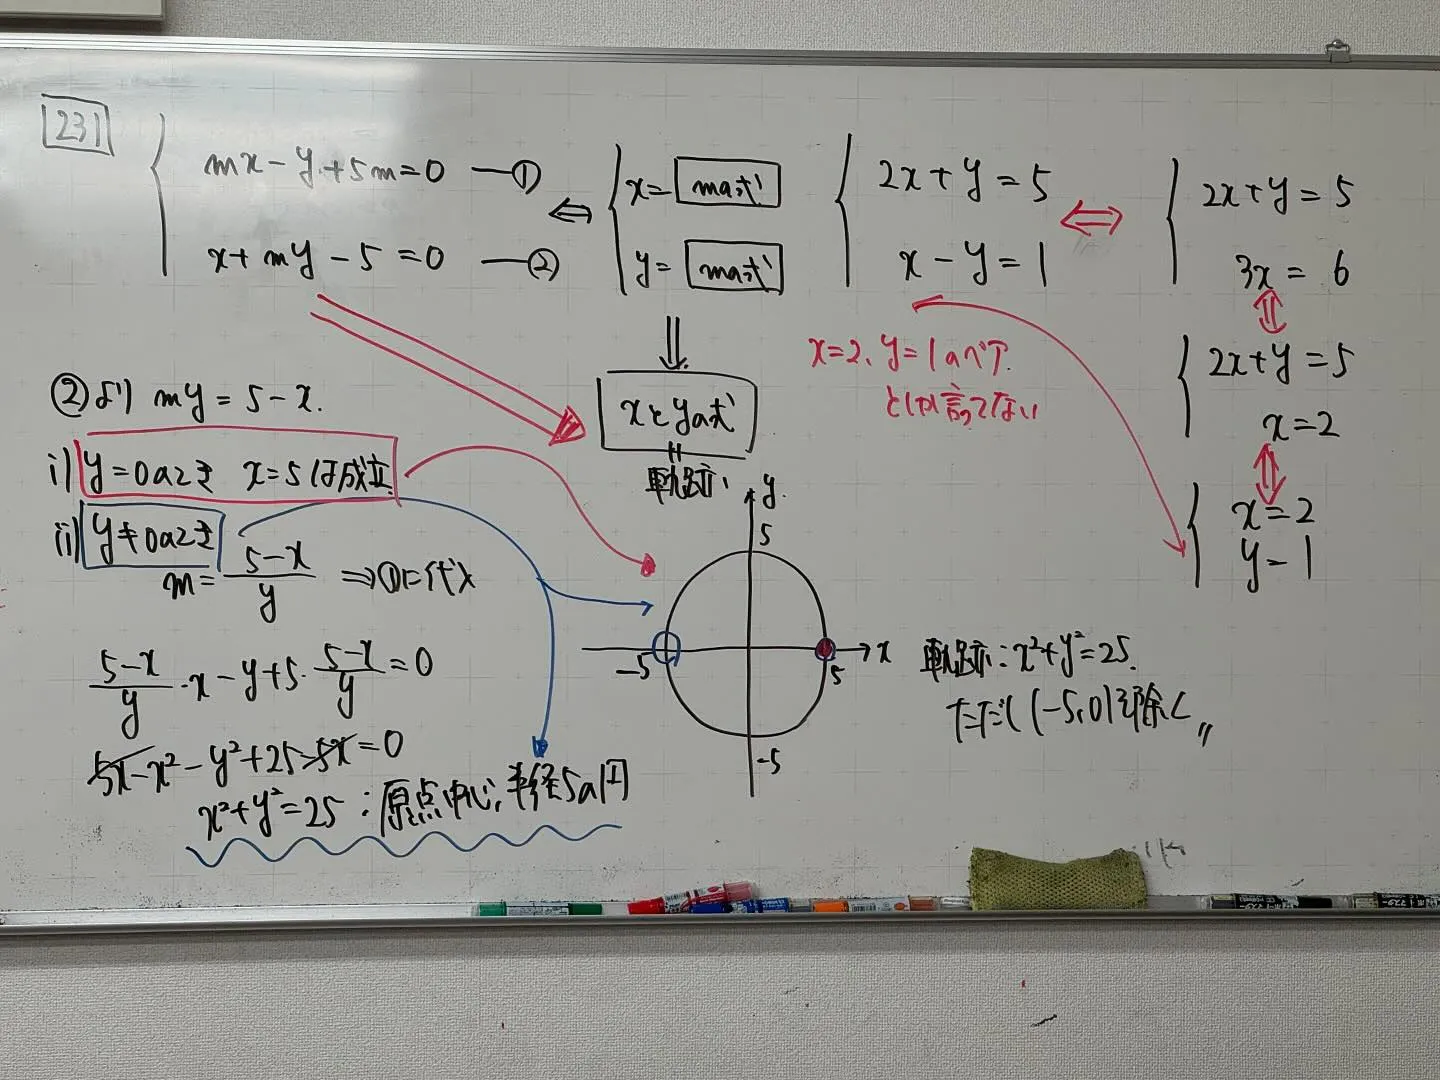 231
mx-y+5m=0 —①
x+my-5=0 —②
⇔
x= mの式
y= mの式
⇓
xとyの式
軌跡
2x+y=5
x-y=1
⇔
2x+y=5
3x=6
2x+y=5
x=2
x=2
y=1
x=2、y=1のペア
としか言ってない
②より my=5-x.
i) y=0のとき x=5は成立
ii) y≠0のとき
m= 5-x/y ⇒①に代入
5-x/y・x-y+5・5-x/y=0
5x-x²-y²+25-5x=0
x²+y²=25:原点中心,半径5の円
y
5
-5
5
x
-5
軌跡:x²+y²=25.
ただし(-5,0)を除く〃